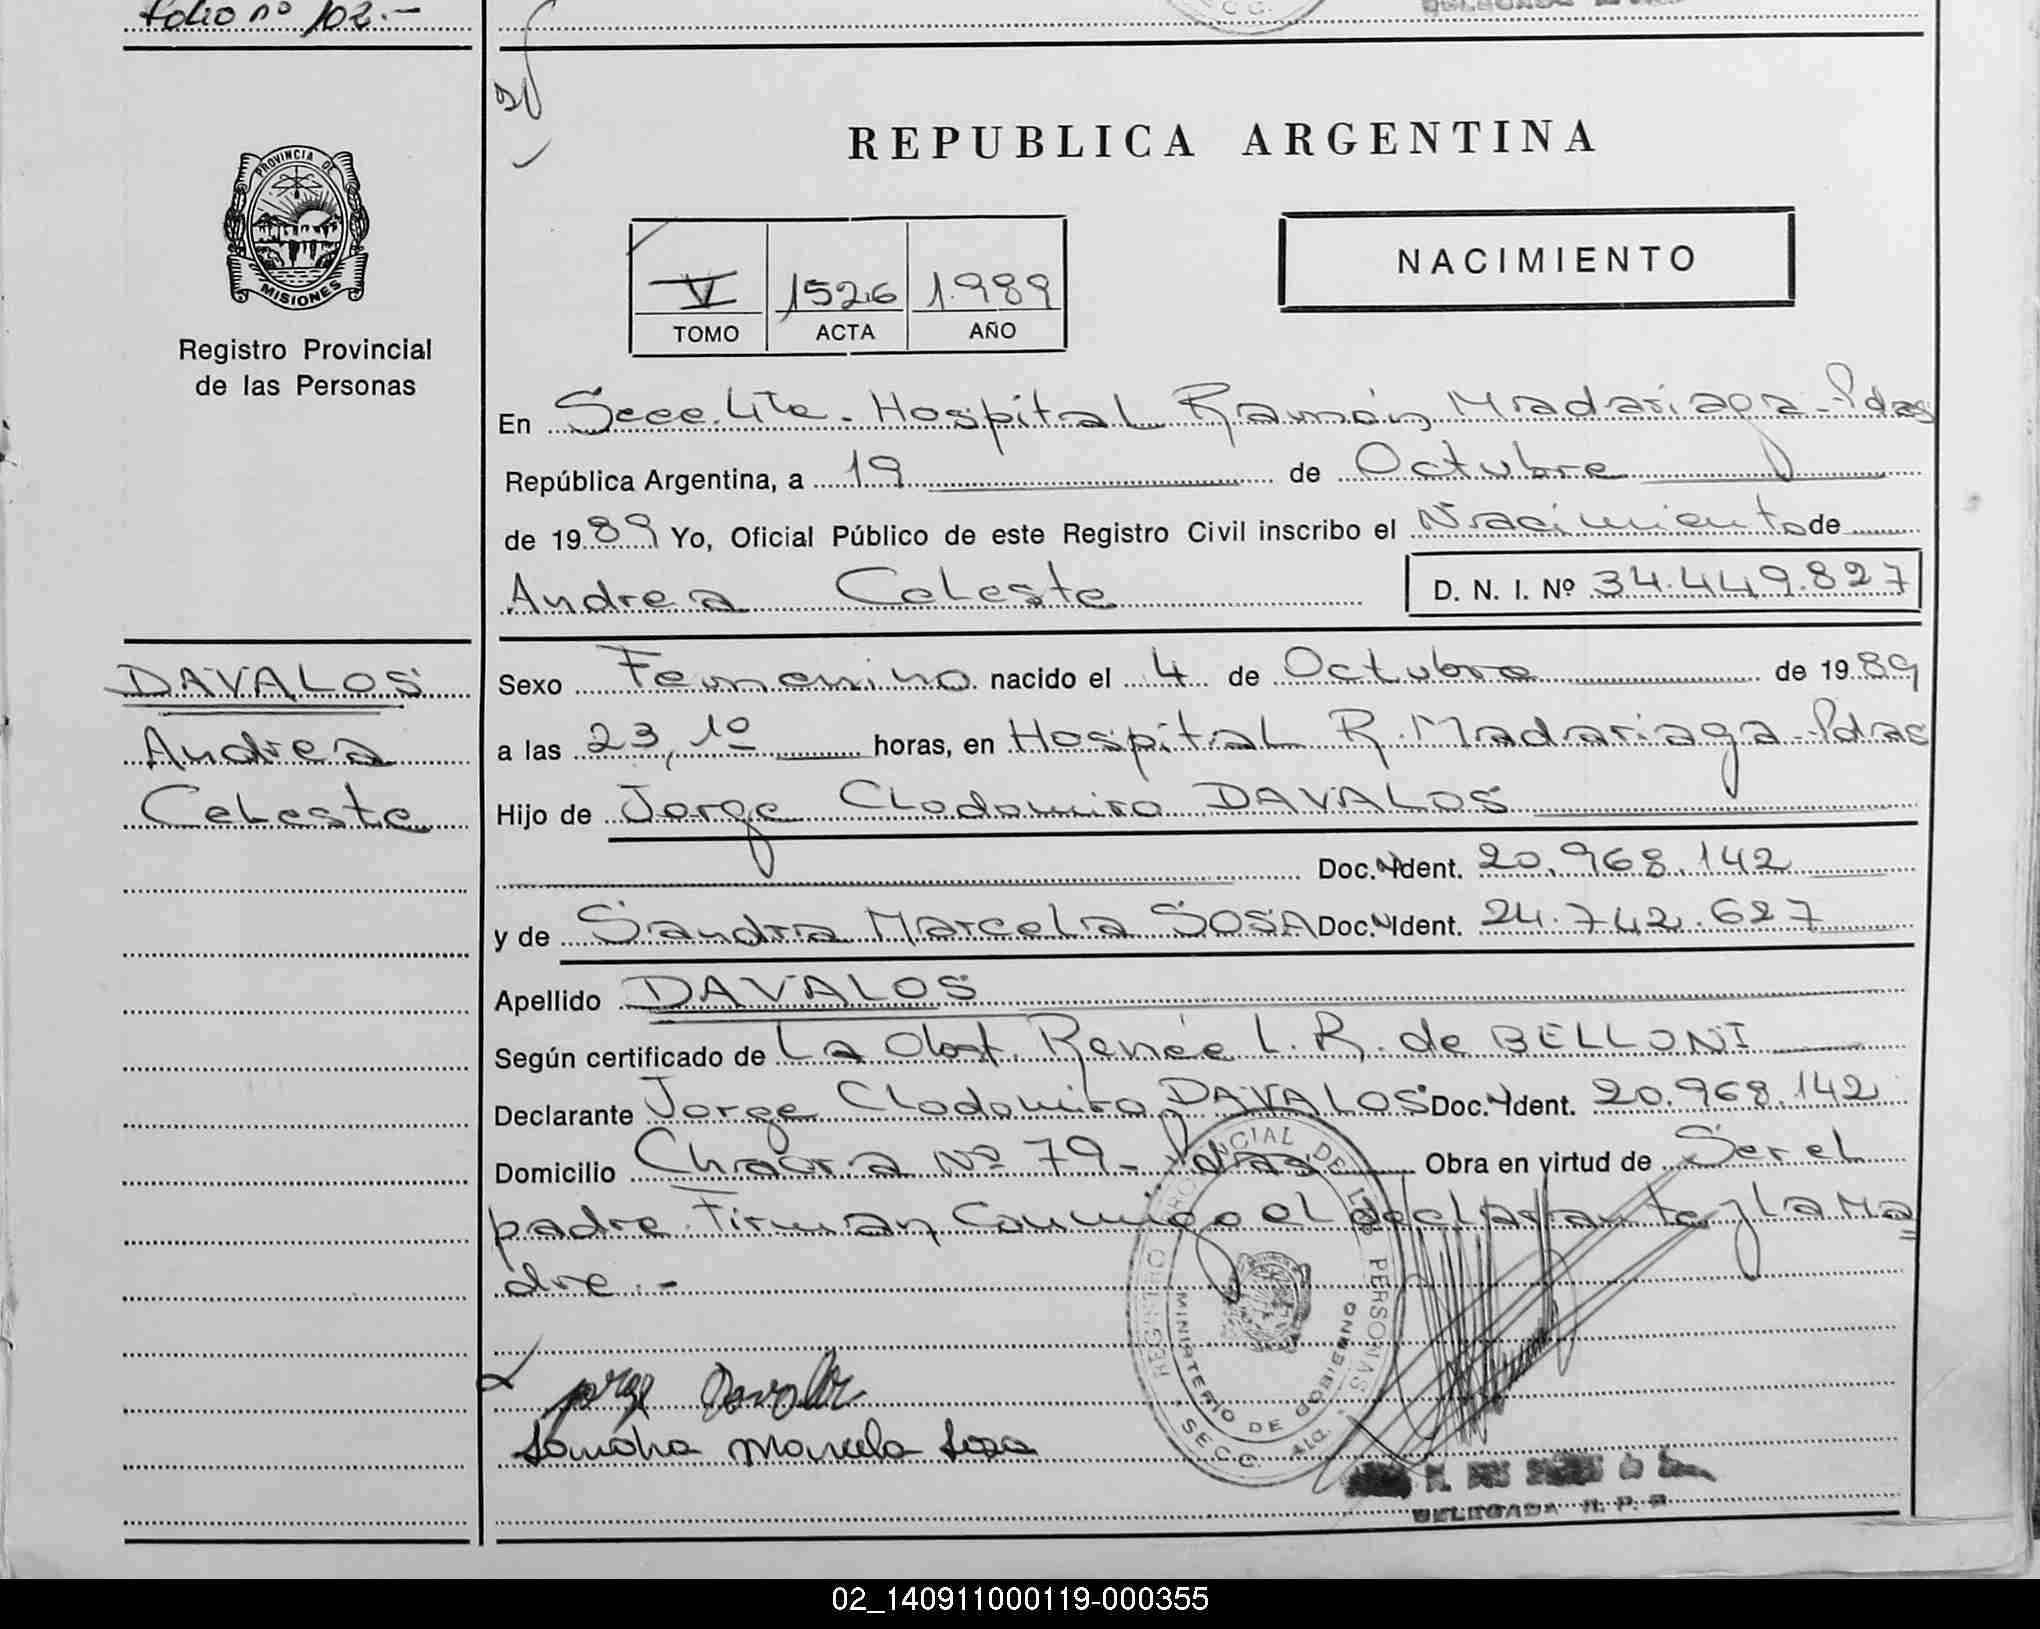 folio nº 102.-
REPUBLICA ARGENTINA
PROVINCIA DE
MISIONES
Registro Provincial
de las Personas
NACIMIENTO
V 1526 1.989
TOMO ACTA AÑO
En Secc. 4ta. Hospital Ramón Madariaga - Pdas
República Argentina, a 19 de Octubre
de 1989 Yo, Oficial Público de este Registro Civil inscribo el Nacimiento de
Andrea Celeste D. N. I. Nº 34.449.827
DAVALOS
Andrea
Celeste
Sexo Femenino nacido el 4 de Octubre de 1989
a las 23,10 horas, en Hospital R. Madariaga - Pdas
Hijo de Jorge Clodomiro DAVALOS
Doc. Ident. 20.968.142
y de Sandra Marcela SOSA Doc. Ident. 24.742.627
Apellido DAVALOS
Según certificado de La Obst. Renée L. R. de BELLONI
Declarante Jorge Clodomiro DAVALOS Doc. Ident. 20.968.142
Domicilio Chacra Nº 79 - Pdas Obra en virtud de Ser el
padre. Firman Conmigo el declarante y la Ma=
dre.-
REGISTRO PROVINCIAL DE LAS PERSONAS
MINISTERIO DE GOBIERNO
SECC. 4ta.
Jorge Davalos
Sandra Marcela Sosa
DELEGADA R. P. P.
02_140911000119-000355